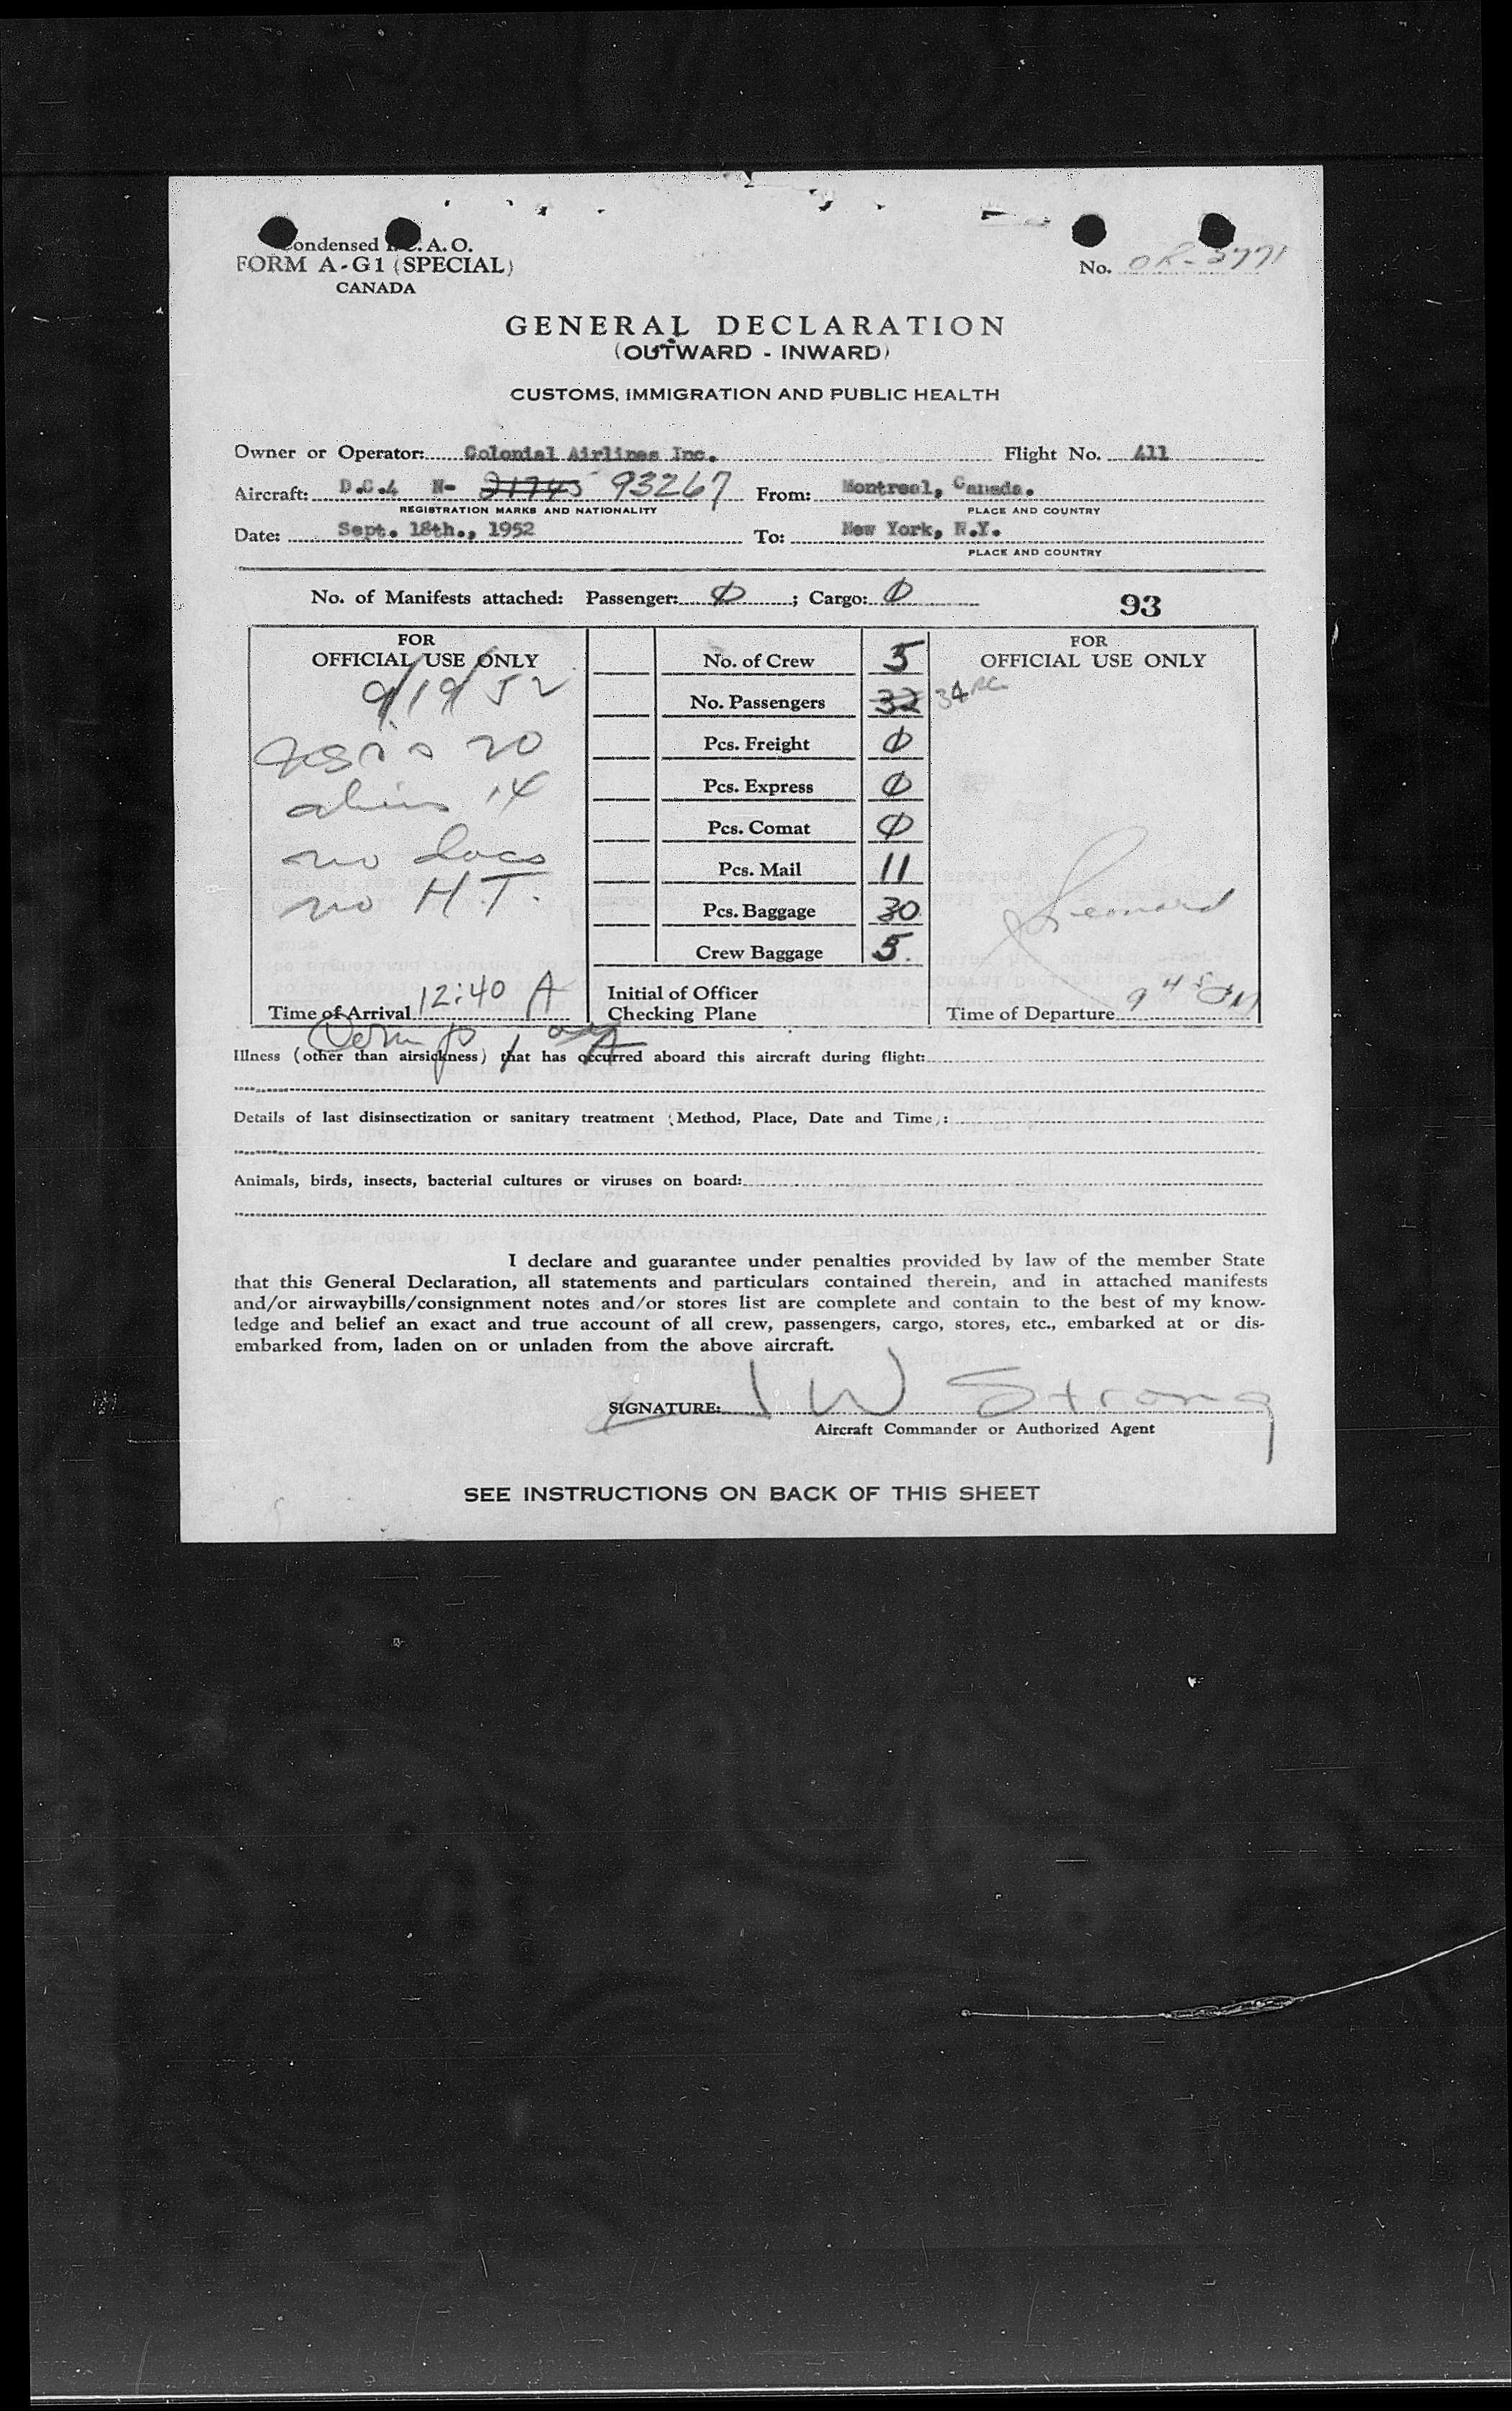 Condensed I.C.A.O.
FORM A-G1 (SPECIAL)
CANADA
No.
GENERAL DECLARATION
(OUTWARD - INWARD)
CUSTOMS, IMMIGRATION AND PUBLIC HEALTH
Owner or Operator: Colonial Airlines Inc. Flight No. 411
Aircraft: D.C.4 N- 21745 93267 From: Montreal, Canada.
REGISTRATION MARKS AND NATIONALITY PLACE AND COUNTRY
Date: Sept. 18th., 1952 To: New York, N.Y.
PLACE AND COUNTRY
No. of Manifests attached: Passenger: Ø ; Cargo: Ø 93
FOR
OFFICIAL USE ONLY
9/19/52
20
aliens 14
no docs
no H.T.
Time of Arrival 12:40 A
No. of Crew 5
No. Passengers 32 34
Pcs. Freight Ø
Pcs. Express Ø
Pcs. Comat Ø
Pcs. Mail 11
Pcs. Baggage 30
Crew Baggage 5.
Initial of Officer
Checking Plane
FOR
OFFICIAL USE ONLY
Leonard
Time of Departure 9 45 PM
Illness (other than airsickness) that has occurred aboard this aircraft during flight:
Details of last disinsectization or sanitary treatment (Method, Place, Date and Time):
Animals, birds, insects, bacterial cultures or viruses on board:
I declare and guarantee under penalties provided by law of the member State
that this General Declaration, all statements and particulars contained therein, and in attached manifests
and/or airwaybills/consignment notes and/or stores list are complete and contain to the best of my know-
ledge and belief an exact and true account of all crew, passengers, cargo, stores, etc., embarked at or dis-
embarked from, laden on or unladen from the above aircraft.
SIGNATURE: J W Strong
Aircraft Commander or Authorized Agent
SEE INSTRUCTIONS ON BACK OF THIS SHEET